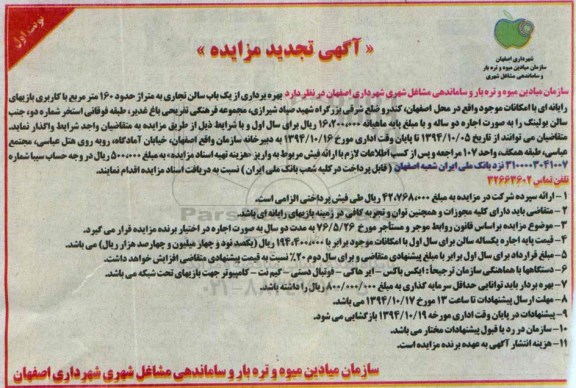 نوبت اول
« آگهی تجدید مزایده »
شهرداری اصفهان
سازمان میادین میوه و تره بار
و ساماندهی مشاغل شهری
سازمان میادین میوه و تره بار و ساماندهی مشاغل شهری شهرداری اصفهان در نظر دارد بهره برداری از یک باب سالن تجاری به متراژ حدود ۱۶۰ متر مربع با کاربری بازیهای
رایانه ای با امکانات موجود واقع در محل اصفهان، کندرو ضلع شرقی بزرگراه شهید صیاد شیرازی، مجموعه فرهنگی تفریحی باغ غدیر، طبقه فوقانی استخر شماره دو، جنب
سالن بولینگ را به صورت اجاره دو ساله و با مبلغ پایه ماهیانه ۱۶،۲۰۰،۰۰۰ ریال برای سال اول و با شرایط ذیل از طریق مزایده به متقاضیان واجد شرایط واگذار نماید.
متقاضیان می توانند از تاریخ ۱۳۹۴/۱۰/۰۵ تا پایان وقت اداری مورخ ۱۳۹۴/۱۰/۱۶ به دبیرخانه سازمان واقع اصفهان، خیابان آمادگاه، روبه روی هتل عباسی، مجتمع
عباسی، طبقه همکف، واحد ۱۰۷ مراجعه و پس از کسب اطلاعات لازم با ارائه فیش مربوط به واریز «هزینه تهیه اسناد مزایده» به مبلغ ۵۰۰،۰۰۰ ریال در وجه حساب سیبا شماره
۳۱۰۰۰۰۳۰۴۱۰۰۷ نزد بانک ملی ایران شعبه اصفهان ( قابل پرداخت در کلیه شعب بانک ملی ایران ) نسبت به دریافت اسناد مزایده اقدام نمایند.
تلفن تماس ۳۲۶۶۳۶۰۲
۱- ارائه سپرده شرکت در مزایده به مبلغ ۴۲،۷۶۸،۰۰۰ ریال طی فیش پرداختی الزامی است.
۲- متقاضی باید دارای کلیه مجوزات و همچنین توان و تجربه کافی در زمینه بازیهای رایانه ای باشد.
۳- موضوع مزایده براساس قانون روابط موجر و مستأجر مورخ ۷۶/۵/۲۶ به مدت دو سال به صورت اجاره در اختیار برنده مزایده قرار می گیرد.
۴- قیمت پایه اجاره یکساله سالن برای سال اول با امکانات موجود برابر با ۱۹۴،۴۰۰،۰۰۰ ریال (یکصد و نود و چهار میلیون و چهارصد هزار ریال) می باشد.
۵- مبلغ قرارداد برای سال اول برابر با مبلغ پیشنهادی متقاضی و برای سال دوم ۲۰٪ نسبت به قیمت پیشنهادی متقاضی افزایش خواهد داشت.
۶- دستگاهها با هماهنگی سازمان ترجیحاً: ایکس باکس - ایر هاکی - فوتبال دستی - گیم نت - کامپیوتر جهت بازیهای تحت شبکه می باشد.
۷- بهره بردار باید توانایی حداقل سرمایه گذاری به مبلغ ۸۰۰/۰۰۰/۰۰۰ ریال را داشته باشد.
۸- مهلت ارسال پیشنهادات تا ساعت ۱۳ مورخ ۱۳۹۴/۱۰/۱۷ می باشد.
۹- پیشنهادات در پایان وقت اداری مورخه ۱۳۹۴/۱۰/۱۹ بازگشایی می شود.
۱۰- سازمان در رد یا قبول پیشنهادات مختار می باشد.
۱۱- هزینه انتشار آگهی به عهده برنده مزایده است.
سازمان میادین میوه و تره بار و ساماندهی مشاغل شهری شهرداری اصفهان